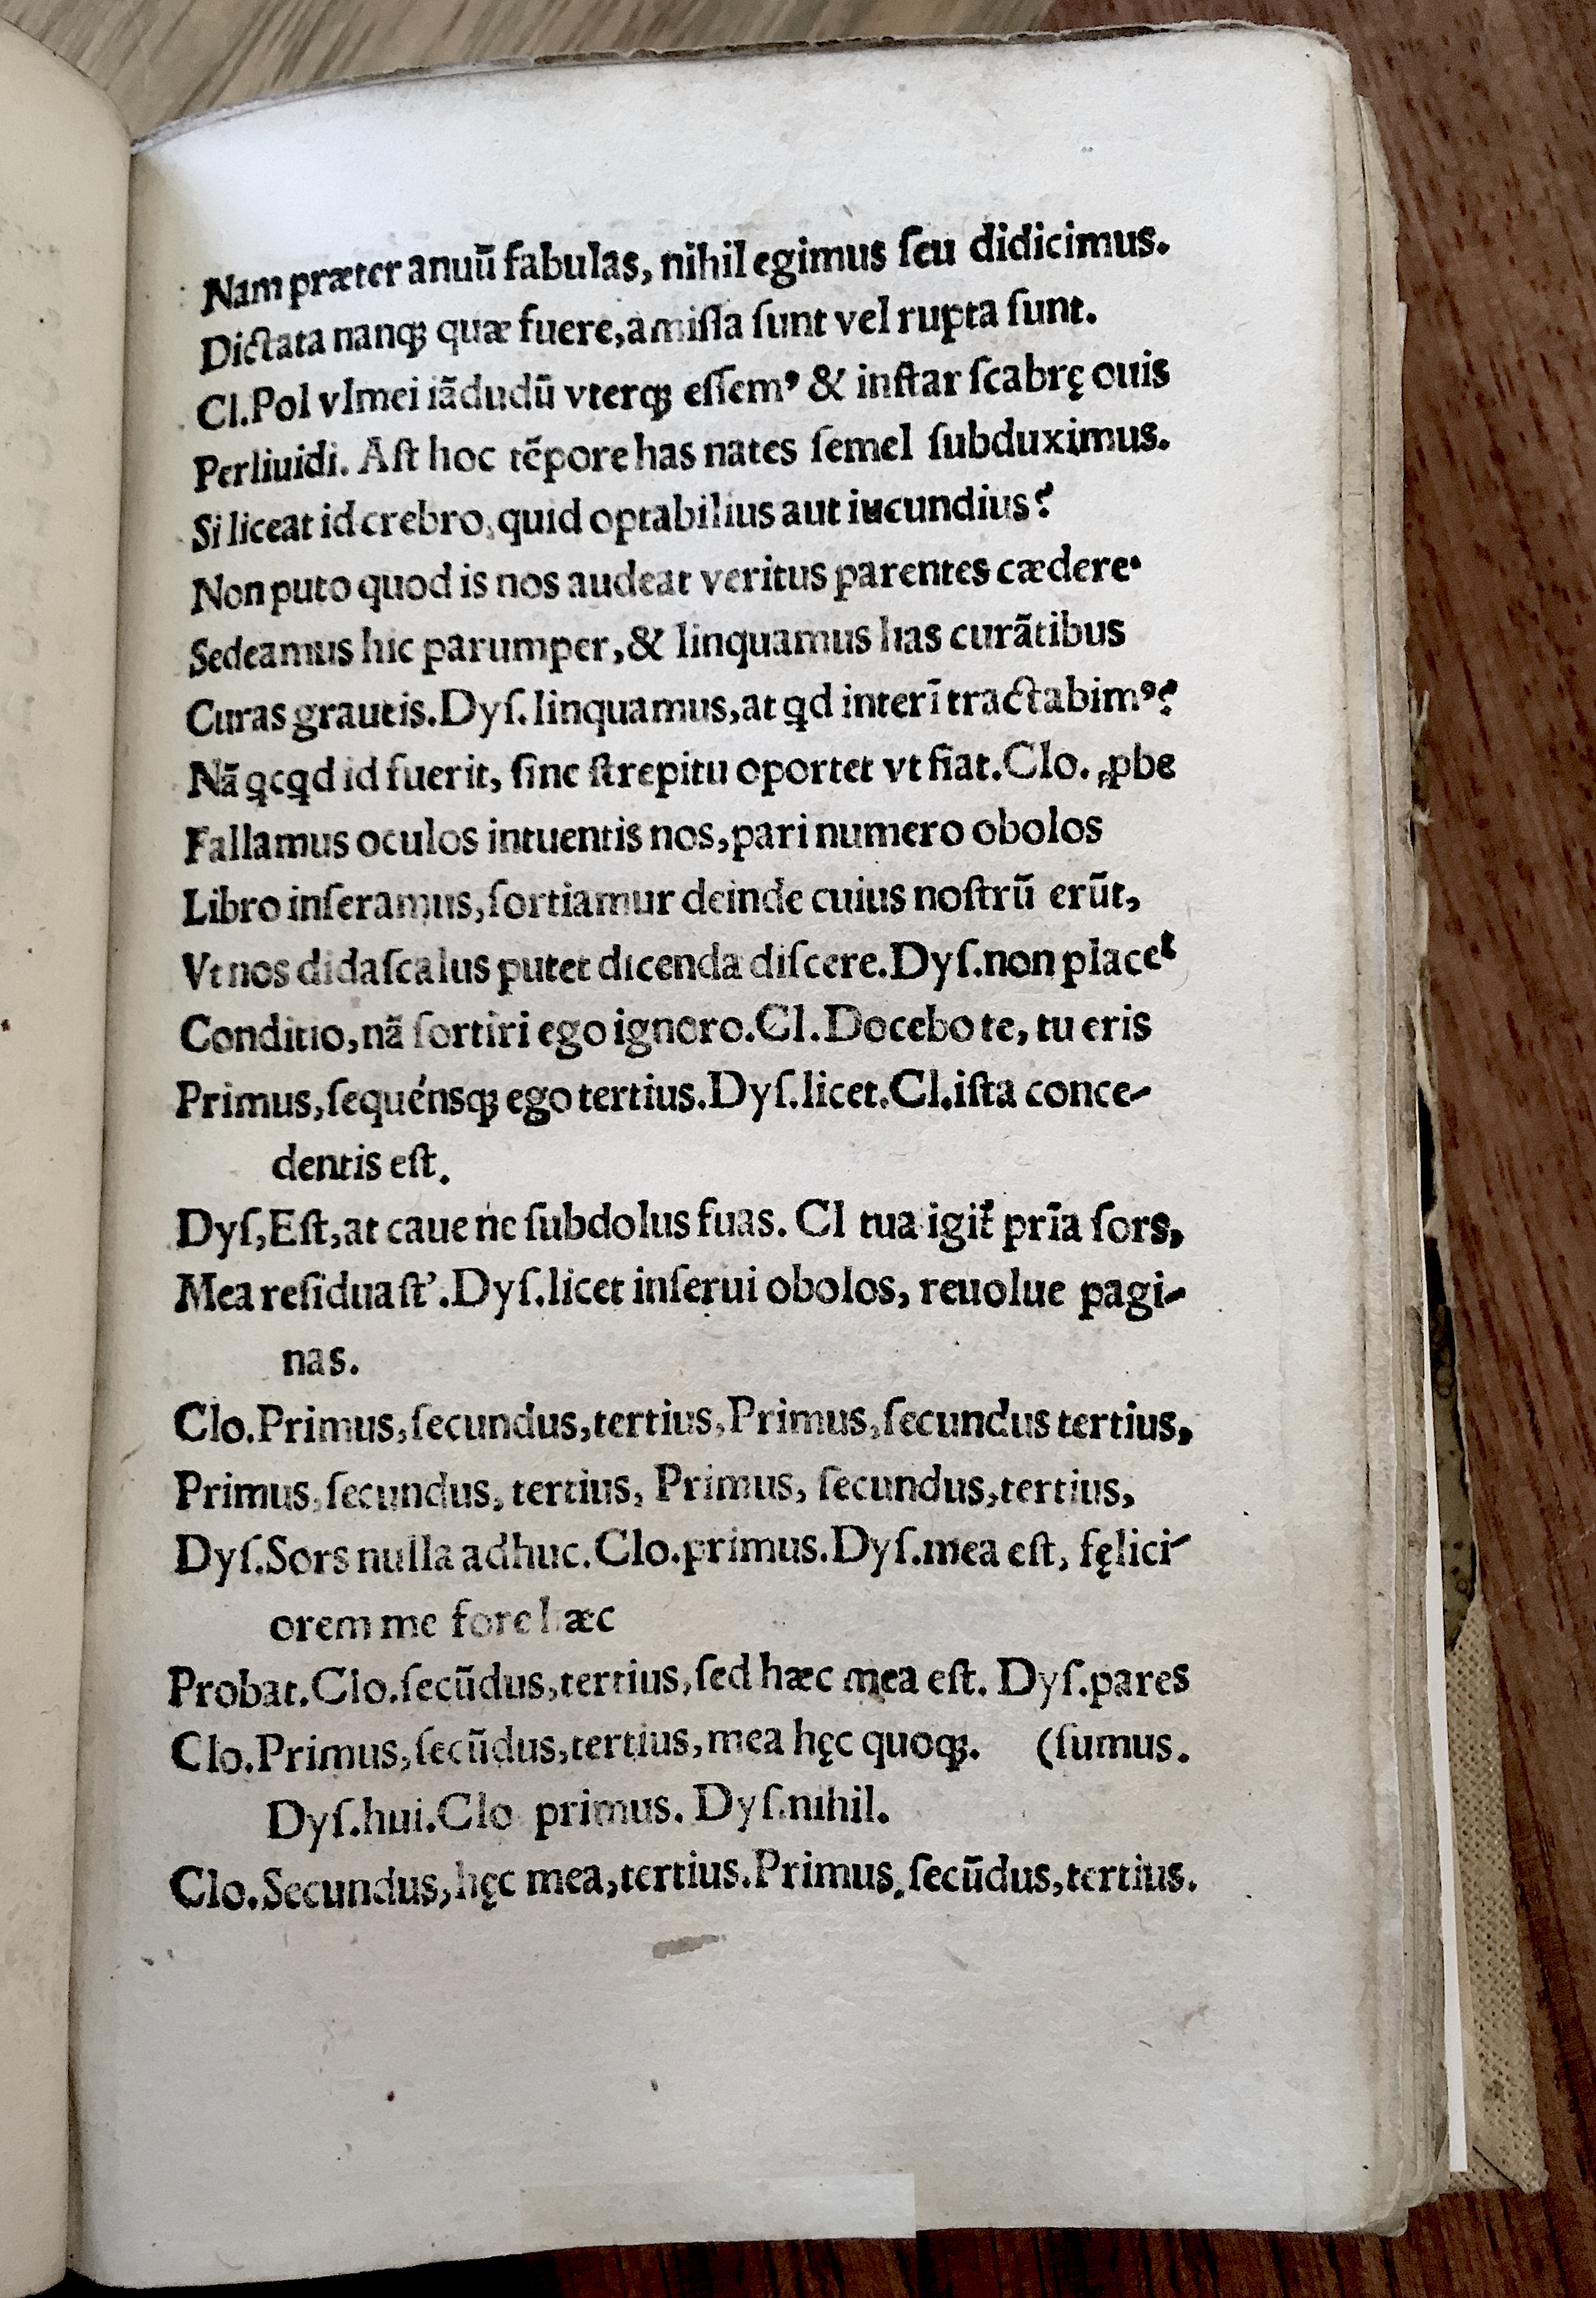 Nam præter anuū fabulas, nihil egimus ſeu didicimus.
Dictata nanqꝫ quæ fuere,amiſſa ſunt vel rupta ſunt.
Cl.Pol vlmei iādudū vterqꝫ eſſemꝰ & inſtar ſcabrę ouis
Perliuidi. Aſt hoc tēpore has nates ſemel ſubduximus.
Si liceat id crebro, quid optabilius aut iucundius?
Non puto quod is nos audeat veritus parentes cædere.
Sedeamus hic parumper,& linquamus has curātibus
Curas grauteis.Dyſ.linquamus,at qd interī tractabimꝰ?
Nā qcqd id fuerit, ſine ſtrepitu oportet vt fiat.Clo. ꝓbe
Fallamus oculos intuentis nos,pari numero obolos
Libro inſeramus,ſortiamur deinde cuius noſtrū erūt,
Vt nos didaſcalus putet dicenda diſcere.Dyſ.non placet
Conditio,nā ſortiri ego ignoro.Cl.Docebo te, tu eris
Primus,ſequénsqꝫ ego tertius.Dyſ.licet.Cl.iſta conce-
dentis eſt.
Dyſ,Eſt,at caue ne ſubdolus fuas. Cl tua igit᷑ prīa ſors,
Mea reſidua ſt'.Dyſ.licet inſerui obolos, reuolue pagi-
nas.
Clo.Primus,ſecundus,tertius,Primus,ſecundus tertius,
Primus,ſecundus, tertius, Primus, ſecundus,tertius,
Dyſ.Sors nulla adhuc.Clo.primus.Dyſ.mea eſt, fęlici-
orem me fore hæc
Probat.Clo.ſecūdus,tertius,ſed hæc mea eſt. Dyſ.pares
Clo.Primus,ſecūdus,tertius,mea hęc quoqꝫ. (ſumus.
Dyſ.hui.Clo primus. Dyſ.nihil.
Clo.Secundus,hęc mea,tertius.Primus,ſecūdus,tertius.